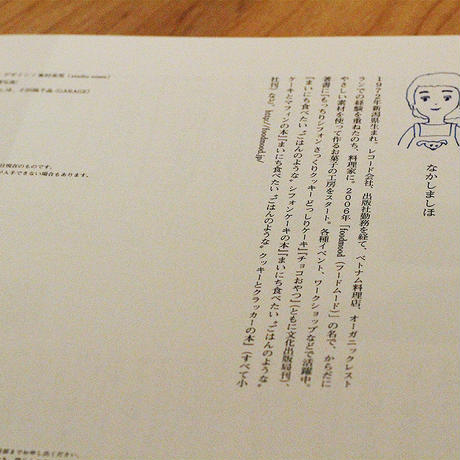 なかしましほ
1972年新潟県生まれ。レコード会社、出版社勤務を経て、ベトナム料理店、オーガニックレスト
ランでの経験を重ねたのち、料理家に。2006年「foodmood（フードムード）」の名で、からだに
やさしい素材を使って作るお菓子の工房をスタート。各種イベント、ワークショップなどで活躍中。
著書に『もっちりシフォン さっくりクッキー どっしりケーキ』『チョコおやつ』（ともに文化出版局刊）、
『まいにち食べたい“ごはんのような”シフォンケーキの本』『まいにち食べたい“ごはんのような”
ケーキとマフィンの本』『まいにち食べたい“ごはんのような”クッキーとクラッカーの本』（すべて小
社刊）など。http://foodmood.jp/
(GARAGE)
在のものです。
手できない場合もあります。
部までお申し出ください。